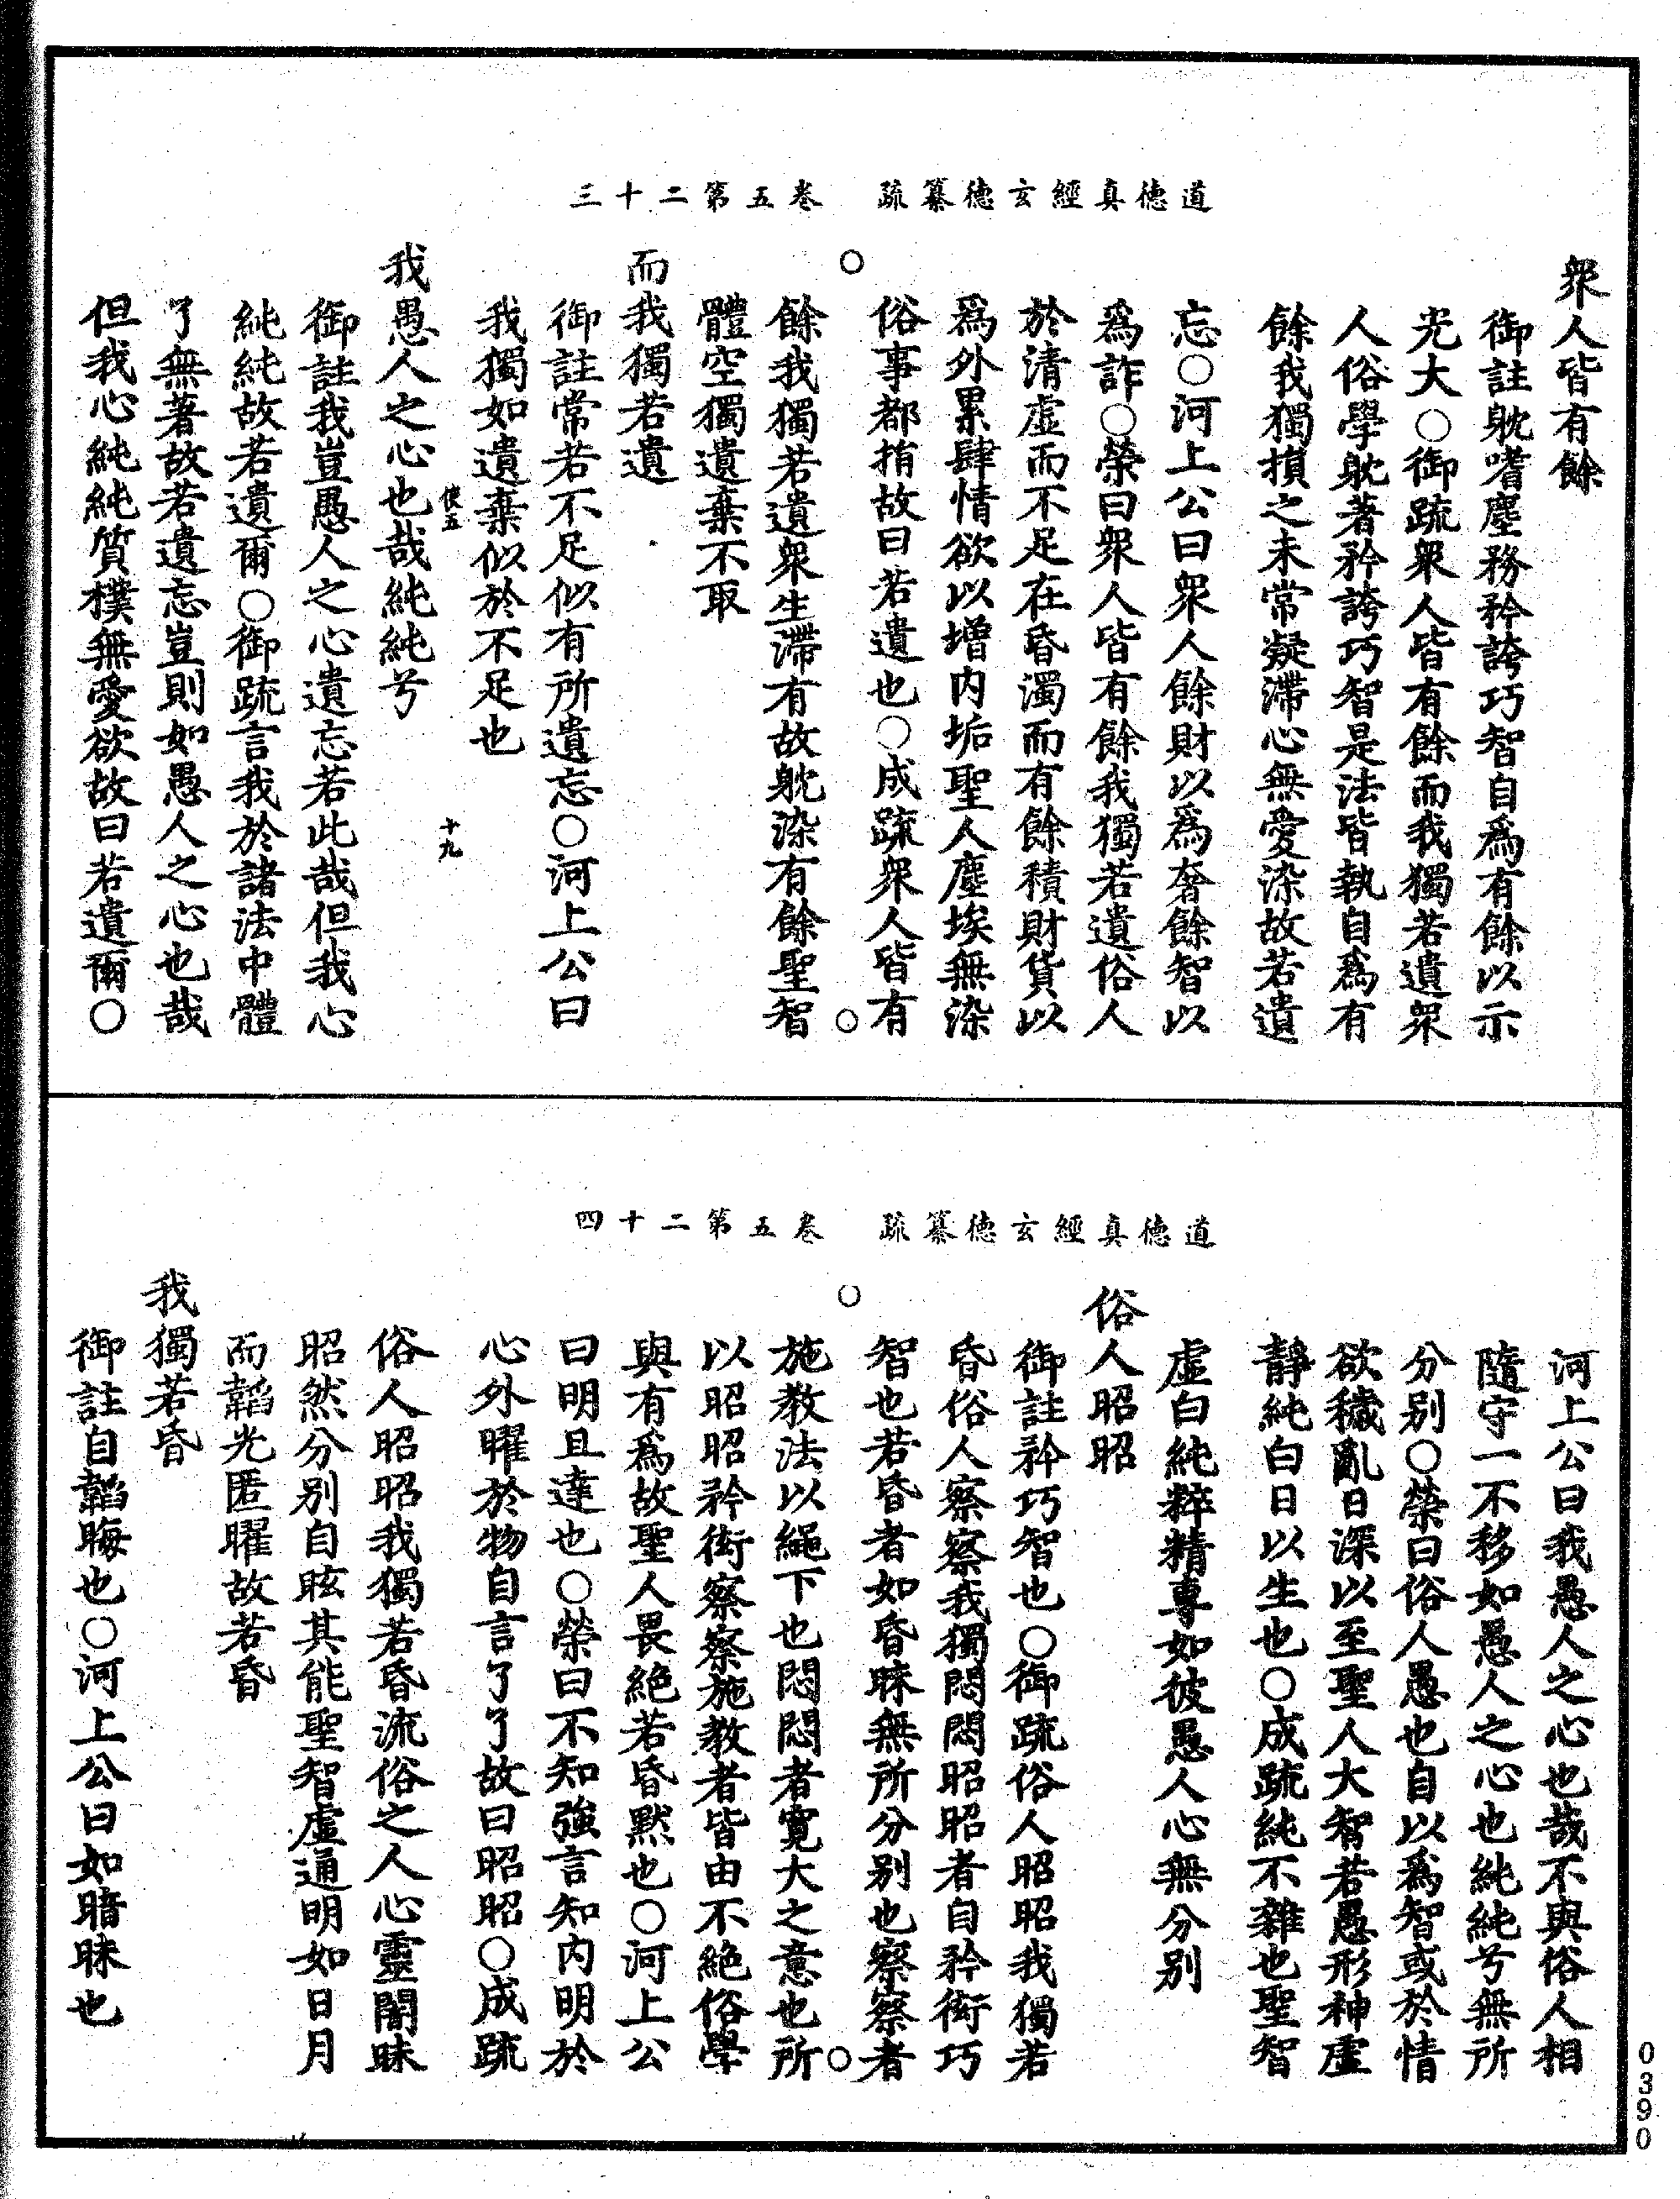 道德真經玄德纂疏　卷五第二十三
衆人皆有餘
御註躭嗜塵務矜誇巧智自爲有餘以示
光大○御疏衆人皆有餘而我獨若遺衆
人俗學躭著矜誇巧智是法皆執自爲有
餘我獨損之未常凝滯心無愛染故若遺
忘○河上公曰衆人餘財以爲奢餘智以
爲詐○榮曰衆人皆有餘我獨若遺俗人
於清虛而不足在昏濁而有餘積財貨以
爲外累肆情欲以增内垢聖人塵埃無染
俗事都捐故曰若遺也○成疏衆人皆有
餘我獨若遺衆生滯有故躭染有餘聖智
體空獨遺棄不取
而我獨若遺
御註常若不足似有所遺忘○河上公曰
我獨如遺棄似於不足也
使五　十九
我愚人之心也哉純純兮
御註我豈愚人之心遺忘若此哉但我心
純純故若遺爾○御疏言我於諸法中體
了無著故若遺忘豈則如愚人之心也哉
但我心純純質樸無愛欲故曰若遺爾○
道德真經玄德纂疏　卷五第二十四
河上公曰我愚人之心也哉不與俗人相
隨守一不移如愚人之心也純純兮無所
分别○榮曰俗人愚也自以爲智或於情
欲穢亂日深以至聖人大智若愚形神虛
靜純白日以生也○成疏純不雜也聖智
虛白純粹精專如彼愚人心無分别
俗人昭昭
御註矜巧智也○御疏俗人昭昭我獨若
昏俗人察察我獨悶悶昭昭者自矜衒巧
智也若昏者如昏昧無所分别也察察者
施教法以繩下也悶悶者寬大之意也所
以昭昭矜衒察察施教者皆由不絕俗學
與有爲故聖人畏絕若昏默也○河上公
曰明且達也○榮曰不知強言知内明於
心外曜於物自言了了故曰昭昭○成疏
俗人昭昭我獨若昏流俗之人心靈闇昧
昭然分别自眩其能聖智虛通明如日月
而韜光匿曜故若昏
我獨若昏
御註自韜晦也○河上公曰如暗昧也
0390